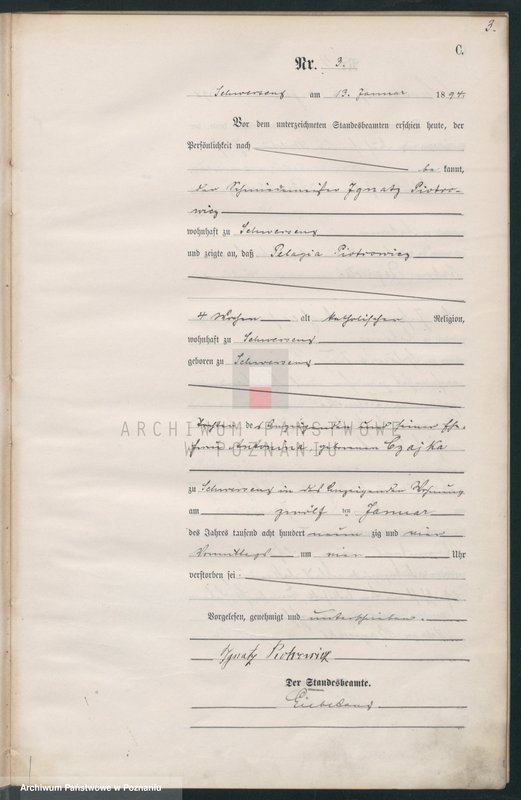 3.
C.
Nr. 3.
Schwersenz am 13. Januar 1894.
Vor dem unterzeichneten Standesbeamten erschien heute, der
Persönlichkeit nach
be kannt,
der Schmiedemeister Ignatz Piotro-
wicz
wohnhaft zu Schwersenz
und zeigte an, daß Pelagia Piotrowicz
4 Wochen alt katholischer Religion,
wohnhaft zu Schwersenz
geboren zu Schwersenz
ARCHIWUM PAŃSTWOWE
W POZNANIU
Tochter des Anzeigenden und seiner Ehe-
frau Antonina, geborenen Czajka
zu Schwersenz in des Anzeigenden Wohnung
am zwölf ten Januar
des Jahres tausend acht hundert neun zig und vier
Vormittags um vier Uhr
verstorben sei.
Vorgelesen, genehmigt und unterschrieben.
Ignatz Piotrowicz
Der Standesbeamte.
Archiwum Państwowe w Poznaniu